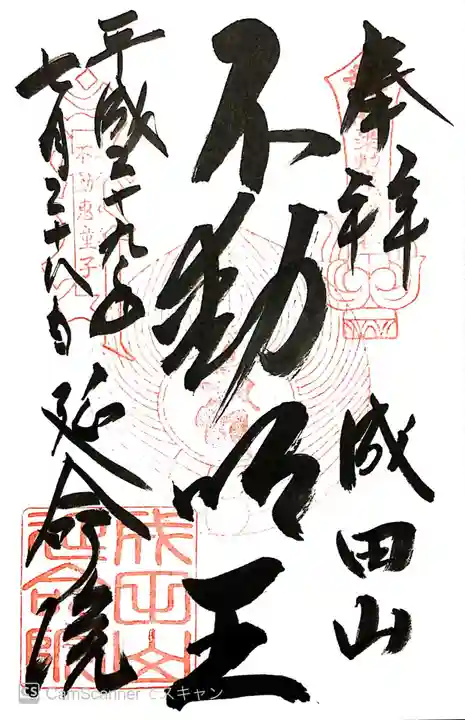 奉拝
成田山
不動明王
平成二十九年
七月二十八日
延命院
不動恵童子
成田山
延命院
CS CamScanner でスキャン